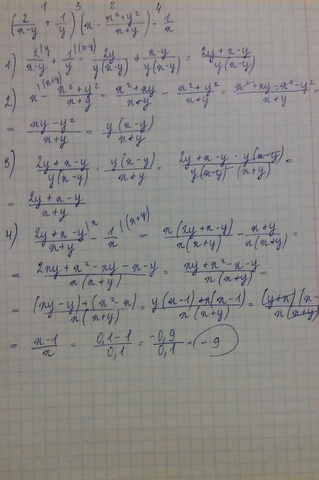 1 3 2 4
(2/(x-y) + 1/y) (x - (x²+y²)/(x+y)) - 1/x
1) 2|y/(x-y) + 1|(x-y)/y = 2y/(y(x-y)) + (x-y)/(y(x-y)) = (2y+x-y)/(y(x-y))
2) x|(x+y) - (x²+y²)/(x+y) = (x²+xy)/(x+y) - (x²+y²)/(x+y) = (x²+xy-x²-y²)/(x+y)
= (xy-y²)/(x+y) = y(x-y)/(x+y)
3) (2y+x-y)/(y(x-y)) · y(x-y)/(x+y) = (2y+x-y · y(x-y))/(y(x-y) · (x+y)) =
= (2y+x-y)/(x+y)
4) (2y+x-y)/(x+y)|x - 1/x|(x+y) = x(2y+x-y)/(x(x+y)) - (x+y)/(x(x+y)) =
= (2xy+x²-xy-x-y)/(x(x+y)) = (xy+x²-x-y)/(x(x+y)) =
= ((xy-y)+(x²-x))/(x(x+y)) = (y(x-1)+x(x-1))/(x(x+y)) = (y+x)(x-/(x(x+y)
= (x-1)/x = (0,1-1)/0,1 = -0,9/0,1 = -9